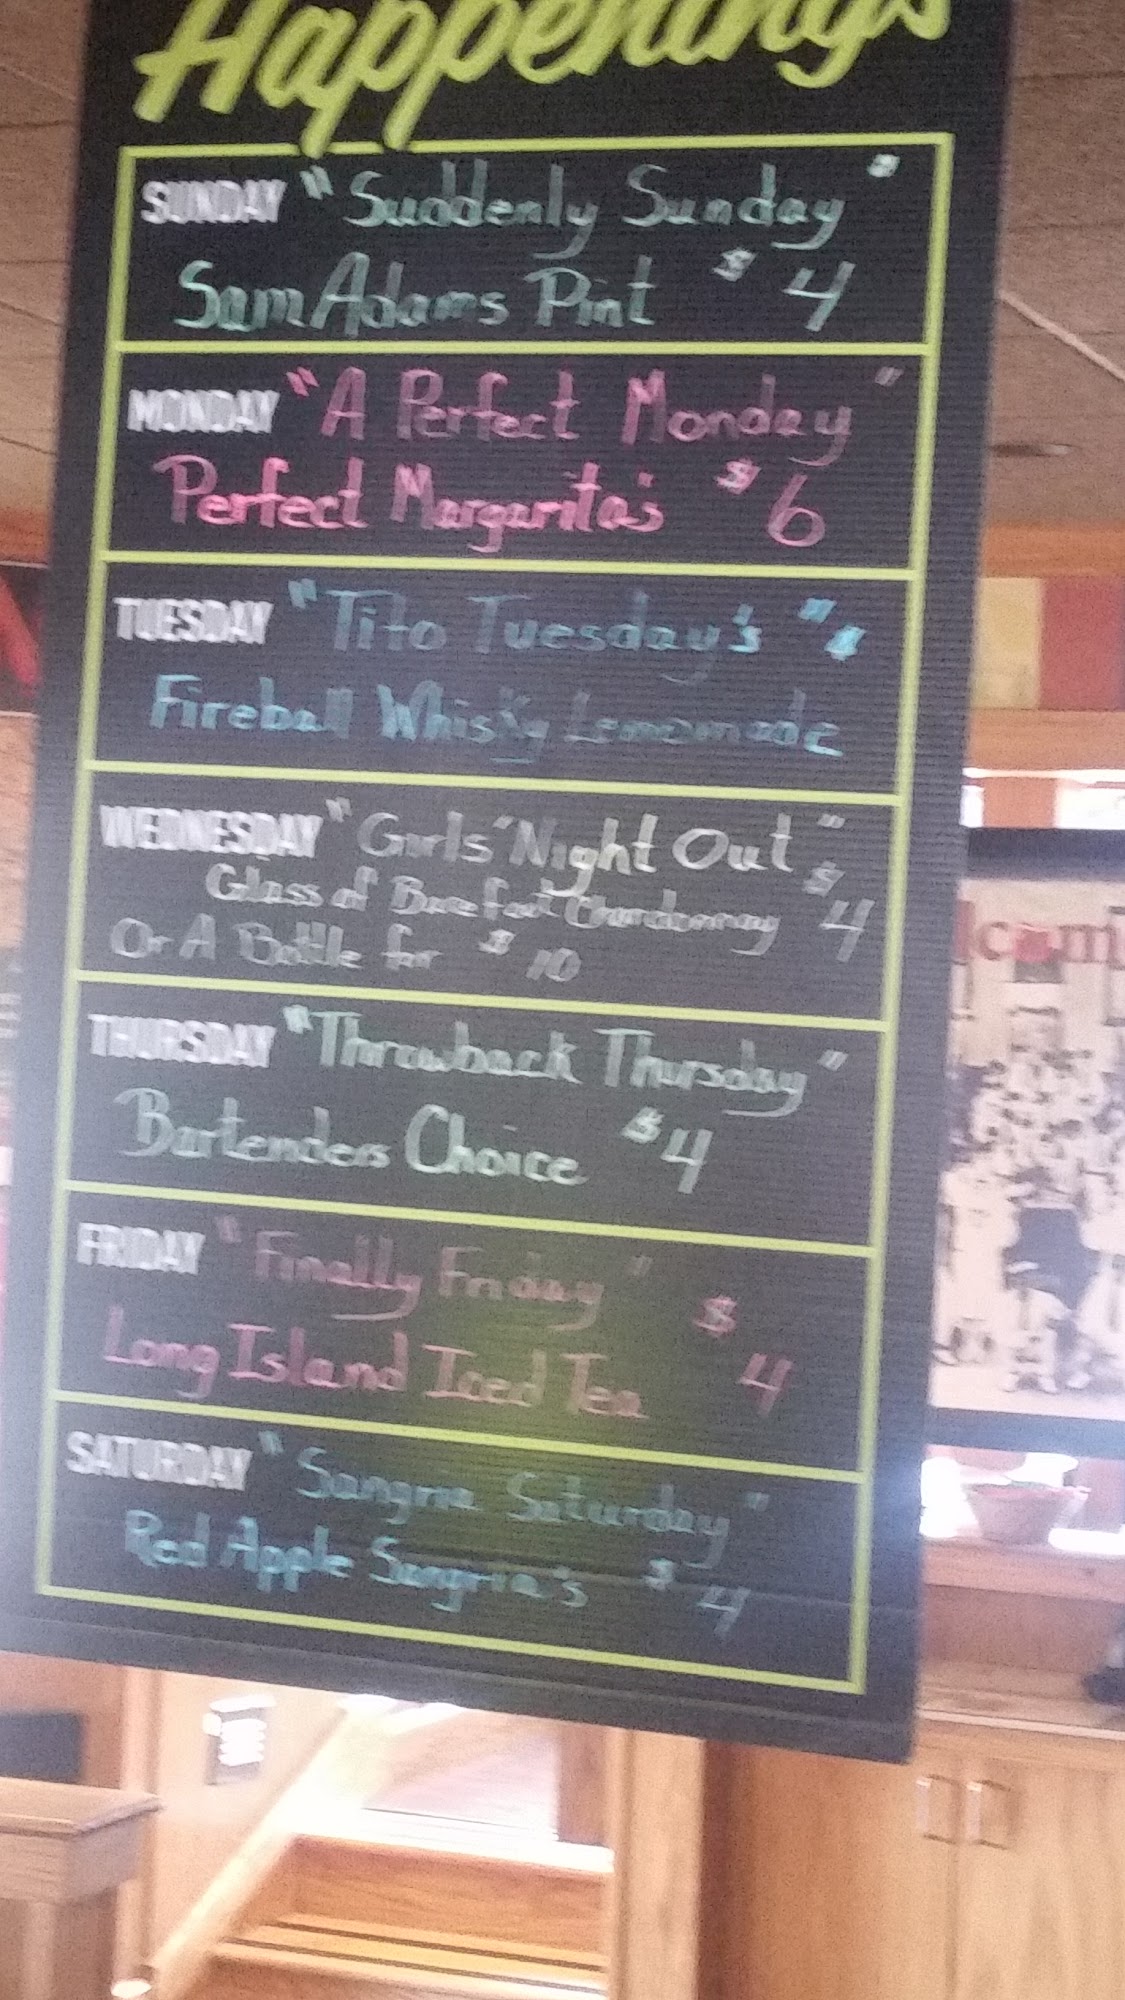 Happenings
SUNDAY "Suddenly Sunday"
Sam Adams Pint $4
MONDAY "A Perfect Monday"
Perfect Margarita's $6
TUESDAY "Tito Tuesday's"
Fireball Whisky Lemomade
WEDNESDAY "Girls' Night Out"
Glass of Barefoot Chardonnay $4
Or A Bottle for $10
THURSDAY "Throwback Thursday"
Bartenders Choice $4
FRIDAY "Finally Friday" $
Long Island Iced Tea 4
SATURDAY "Sangria Saturday"
Red Apple Sangria's $4